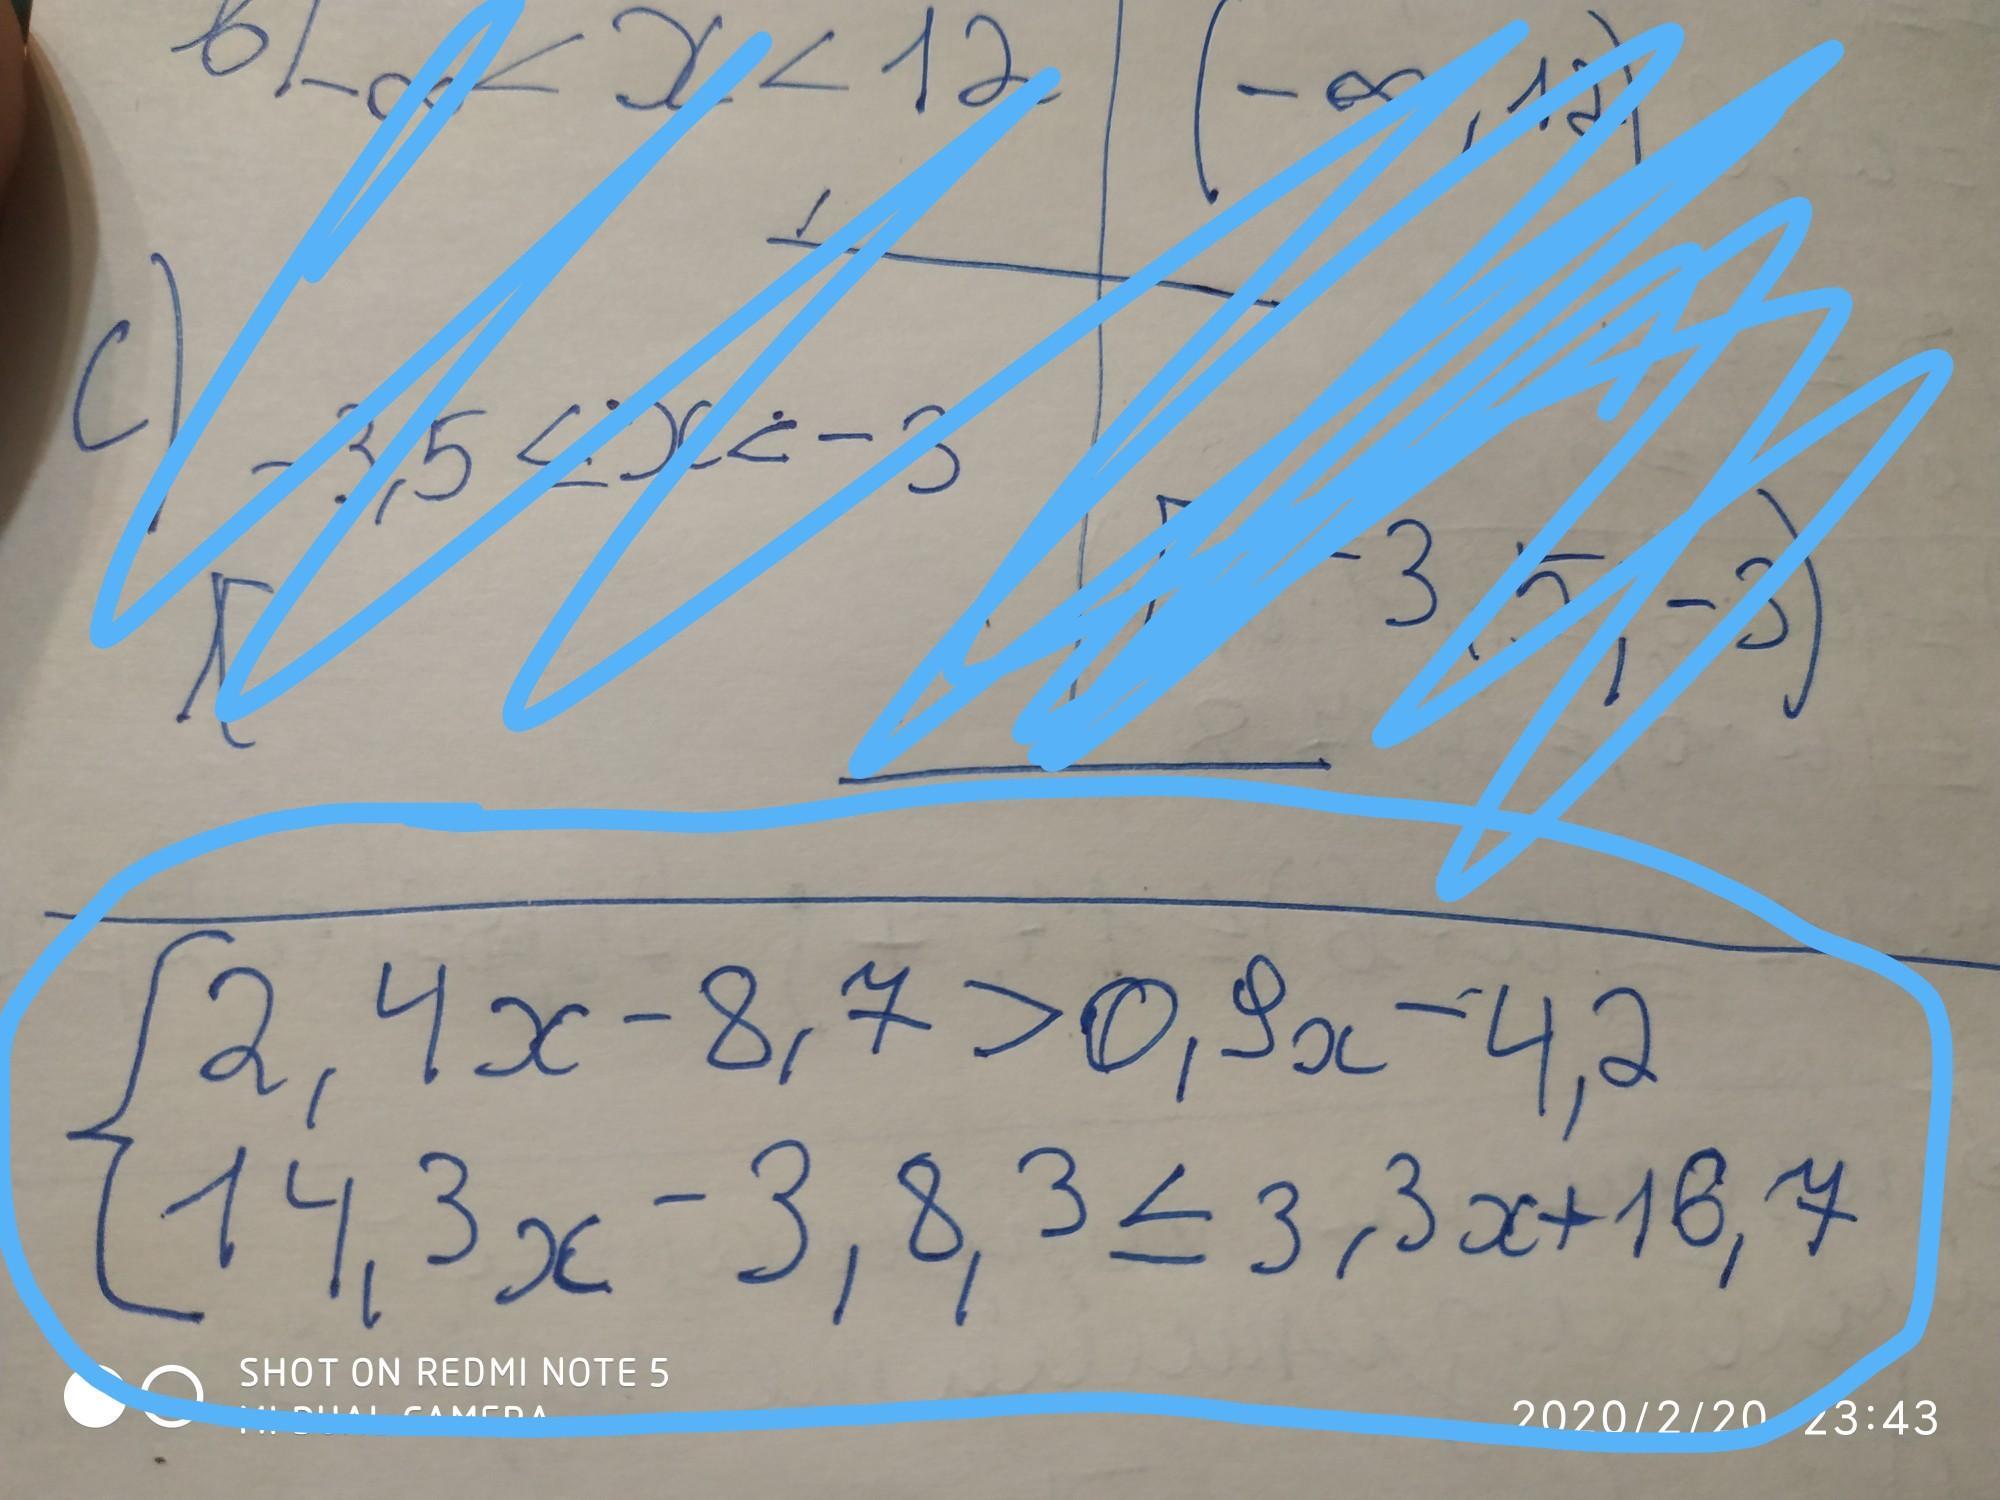 b) -∞ < x < 12 | (-∞, 12)
c) -3,5 ≤ x < -3
[-3,5, -3)
{2,4x-8,7>0,9x-4,2
14,3x-3,8,3≤3,3x+16,7
SHOT ON REDMI NOTE 5
MI DUAL CAMERA
2020/2/20 23:43